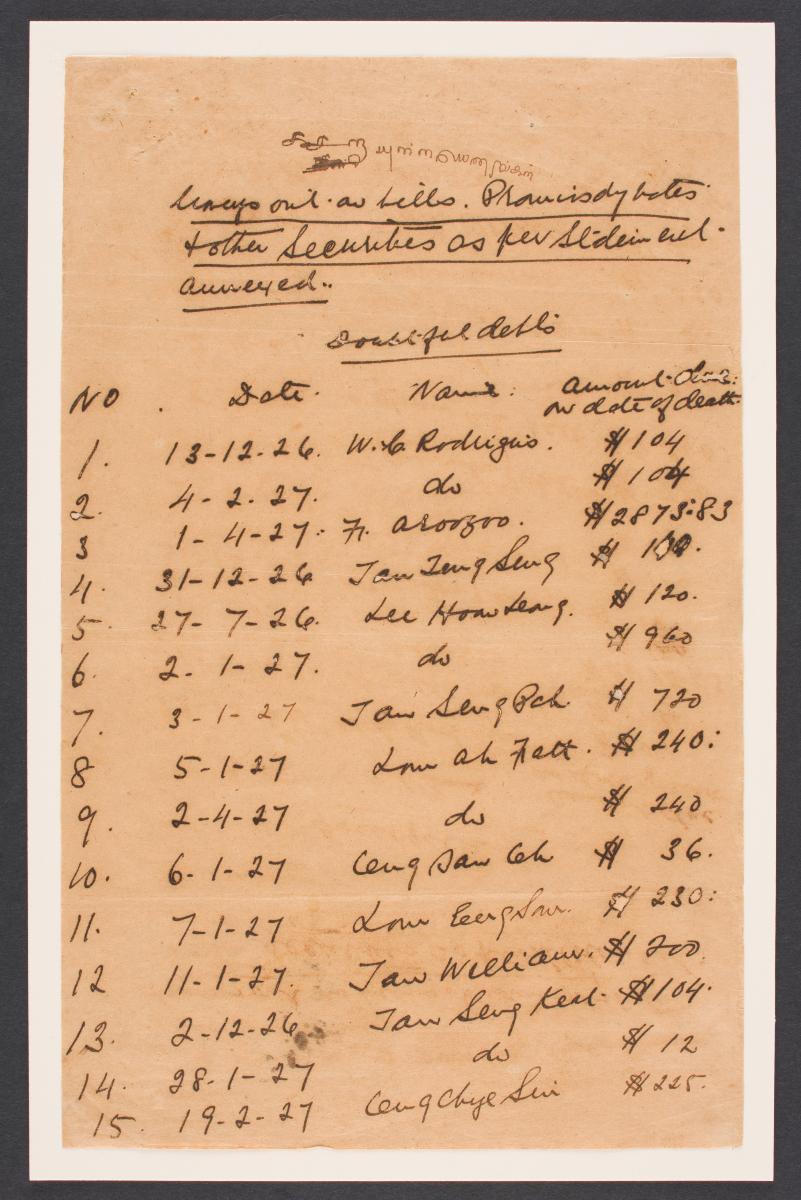 Moneys out on bills. Promisdy notes
& other Securities as per Statement
annexed..
Doubtful debts
NO. Date. Name: Amount due:
on date of death.
1. 13-12-26. W. C. Rodrigus. $104
2. 4-2-27. do $104
3 1-4-27. F. Aroozoo. $2873:83
4. 31-12-26 Tan Teng Seng $
5. 27-7-26. Lee Hoon Leong. $120.
6. 2-1-27. do $960
7. 3-1-27 Tan Seng Poh $720
8 5-1-27 Low Ah Fatt. $240:
9. 2-4-27 do $240
10. 6-1-27 Ceng San Eh $36.
11. 7-1-27 Low Eeng Sow. $230:
12 11-1-27. Tan William. $200
13. 2-12-26 Tan Seng Keat. $104.
14. 28-1-27 do $12
15. 19-2-27 Ceng Chye Sin $225.